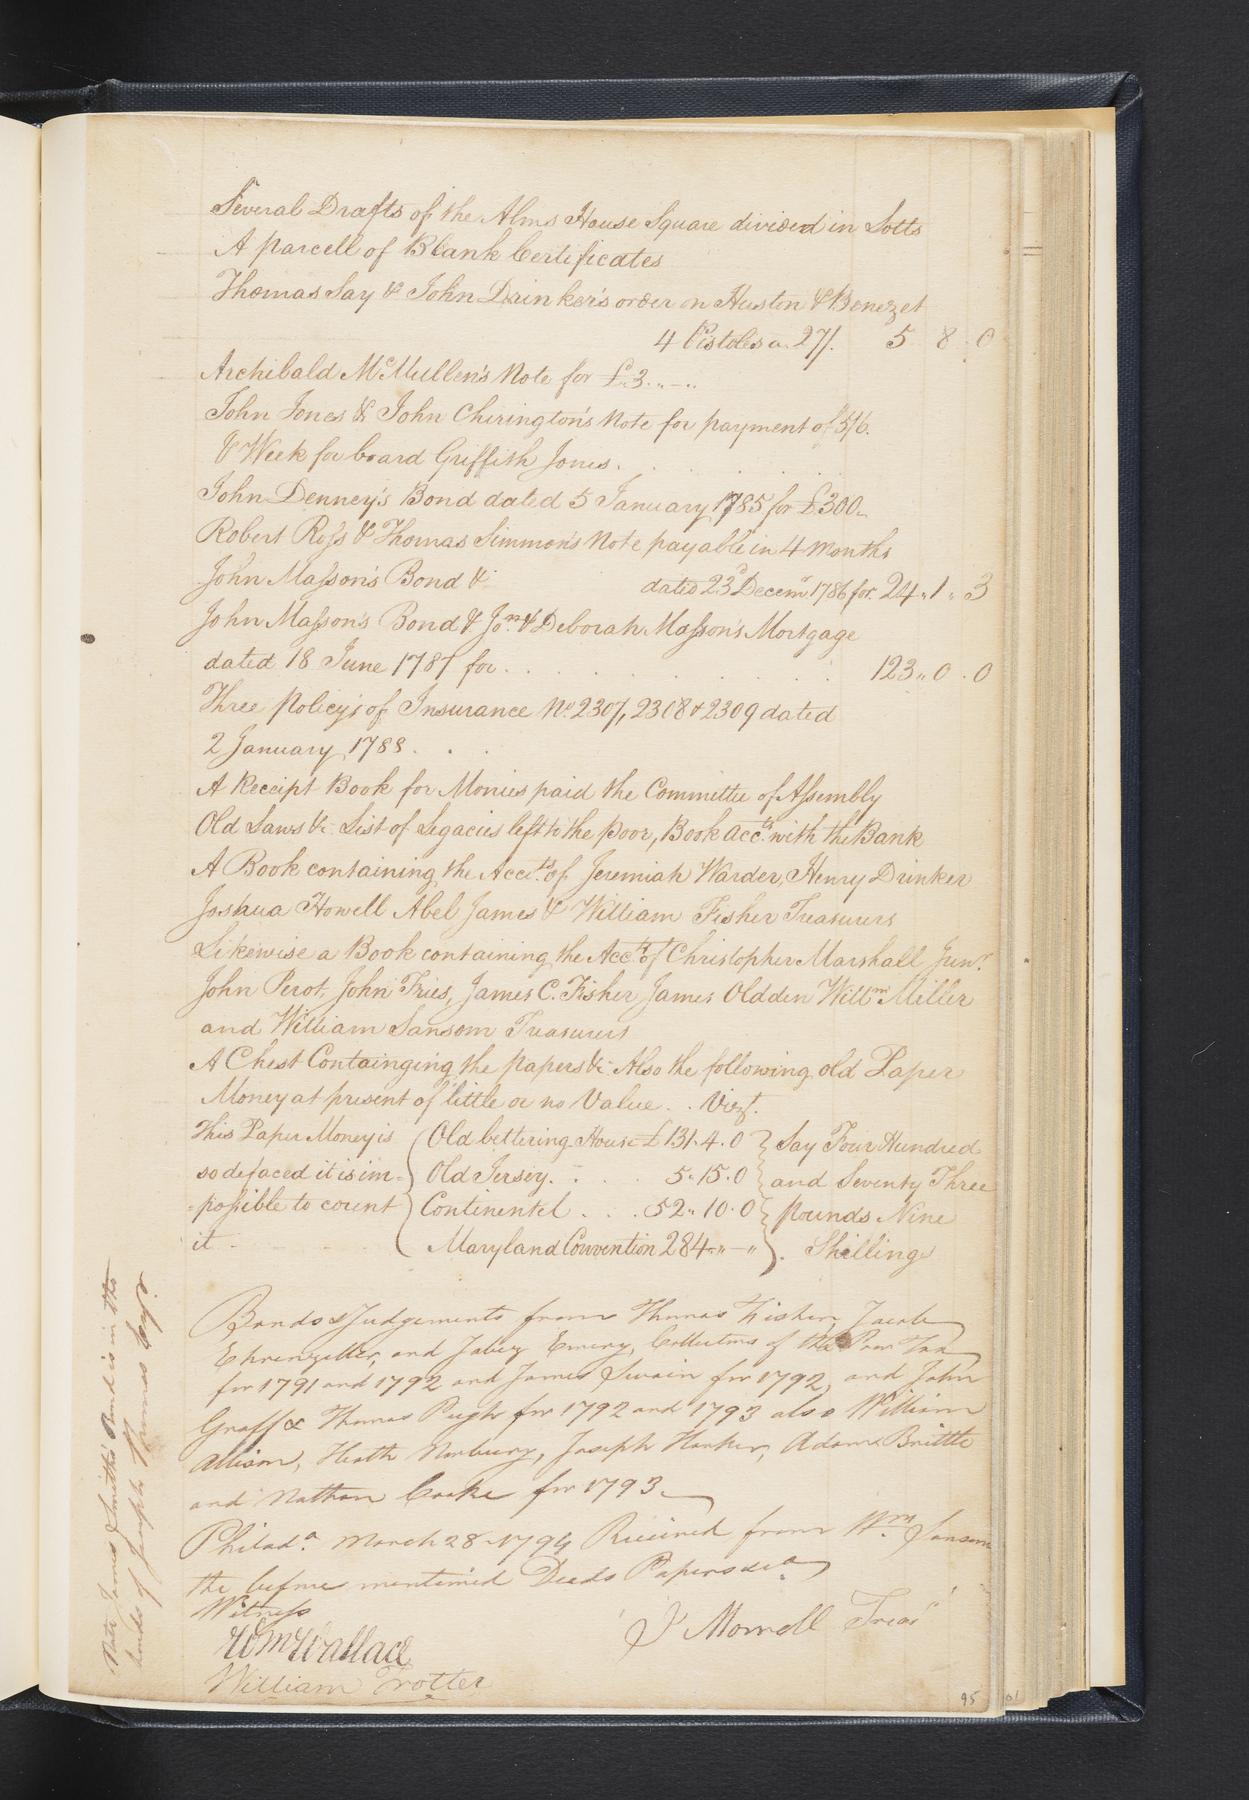 Several Drafts of the Alms House Square divided in Lotts
A parcell of Blank Certificates
Thomas Say & John Drinker's order on Huston & Benezet
4 Pistoles a 27/. 5 8 0
Archibald McMullen's Note for £3..–..
John Jones & John Chirington's Note for payment of 5/6.
⅌ Week for board Griffith Jones.
John Denney's Bond dated 5 January 1785 for £300–
Robert Ross & Thomas Simmon's Note payable in 4 Months
John Masson's Bond & dated 23d Decemr 1786 for 24..1..3
John Masson's Bond & Jno. & Deborah Masson's Mortgage
dated 18 June 1787 for . . . 123..0.0
Three Policy's of Insurance No. 2307, 2308 & 2309 dated
2 January 1788 . .
A Receipt Book for Monies paid the Committee of Assembly
Old Laws &c. List of Legacies left to the poor, Book Accts. with the Bank
A Book containing the Accts. of Jeremiah Warder, Henry Drinker
Joshua Howell Abel James & William Fisher Treasurers
Likewise a Book containing the Accts. of Christopher Marshall Junr.
John Perot, John Fries, James C. Fisher James Oldden Willm Miller
and William Sansom Treasurers
A Chest Containging the papers &c. Also the following old Paper
Money at present of little or no Value . . Vizt.
This Paper Money is (Old bettering House £131.4.0 } Say Four Hundred
so defaced it is im= Old Jersey. . . 5.15.0 and Seventy Three
=possible to count Continentel . . . 52..10.0 Pounds Nine
it – Maryland Convention 284..–..) . Shillings
Bonds & Judgements from Thomas Fisher, Jacob
Ehrenzeller, and Jabez Emery, Collectors of the Poor Tax
for 1791 and 1792 and James Swain for 1792, and John
Graff & Thomas Pugh for 1792 and 1793 also William
Allison, Heath Norbury, Joseph Harker, Adam Brittle
and Nathan Cooke for 1793.
Philada. March 28–1794 Received from Wm. Sansom
the before mentioned Deeds Papers &ca
Witness
J Morrell Treasr
Wm Wallace
William Trotter
Note James Smiths Bond is in the
hands of Joseph Thomas Esqr.
95